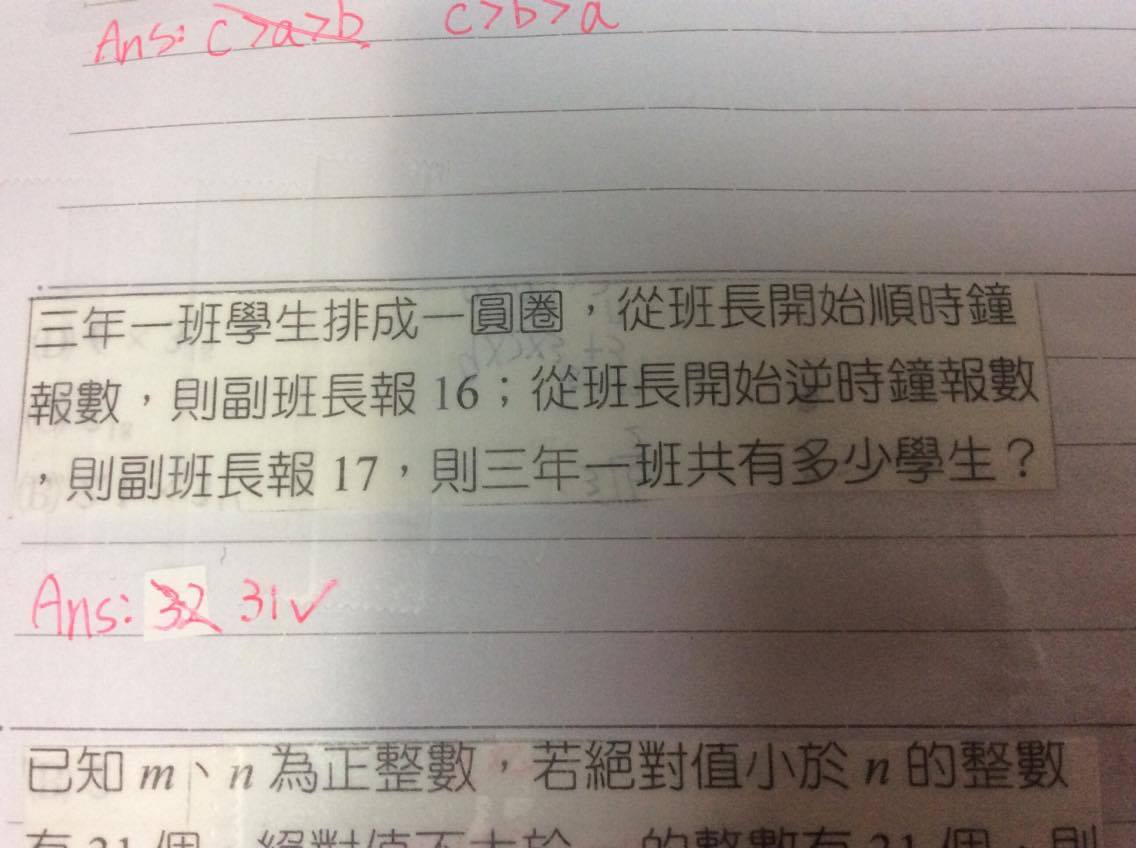 Ans: c>a>b c>b>a
三年一班學生排成一圓圈，從班長開始順時鐘
報數，則副班長報 16；從班長開始逆時鐘報數
，則副班長報 17，則三年一班共有多少學生？
Ans: 32 31✓
已知 m、n 為正整數，若絕對值小於 n 的整數
有 21 個，絕對值不大於 的整數有 31 個，則